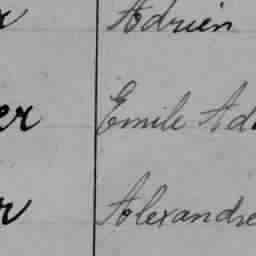 r Adrien
er Emile Ad
r Alexandre